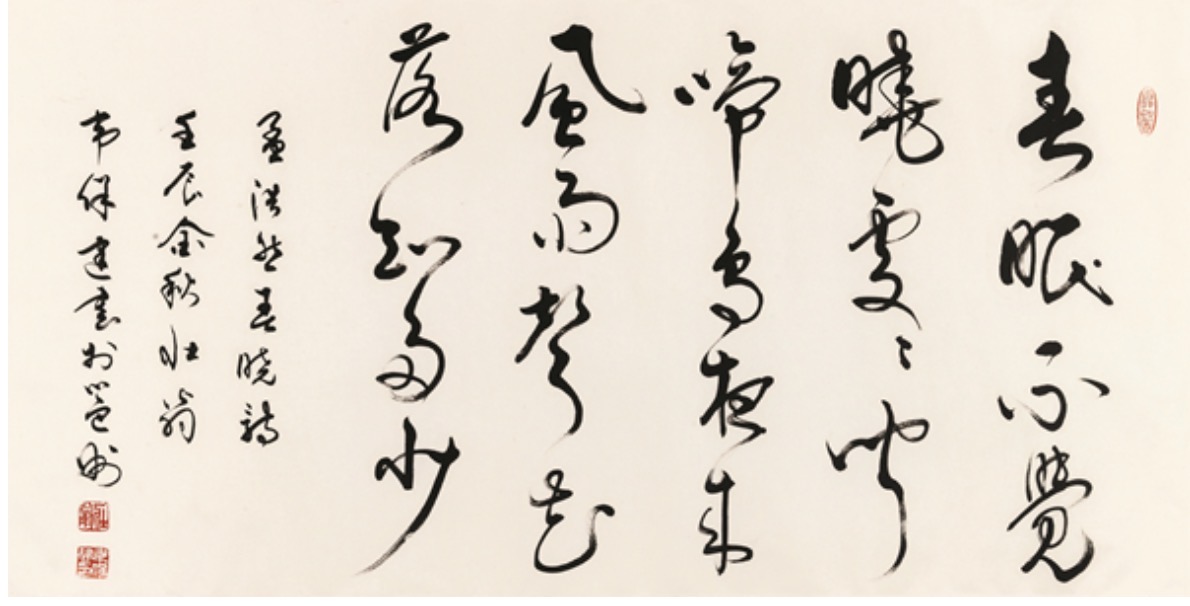 春眠不覺
曉處〻聞
啼鳥夜來
風雨聲花
落知多少
孟浩然春曉詩
壬辰金秋壯翁
韦保建書於邕州